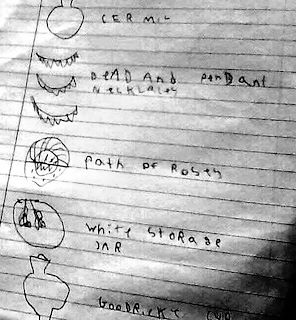 CERMIC
BEAD AND PENDANT
NECKLACES
Path of Roses
white Storage
JAR